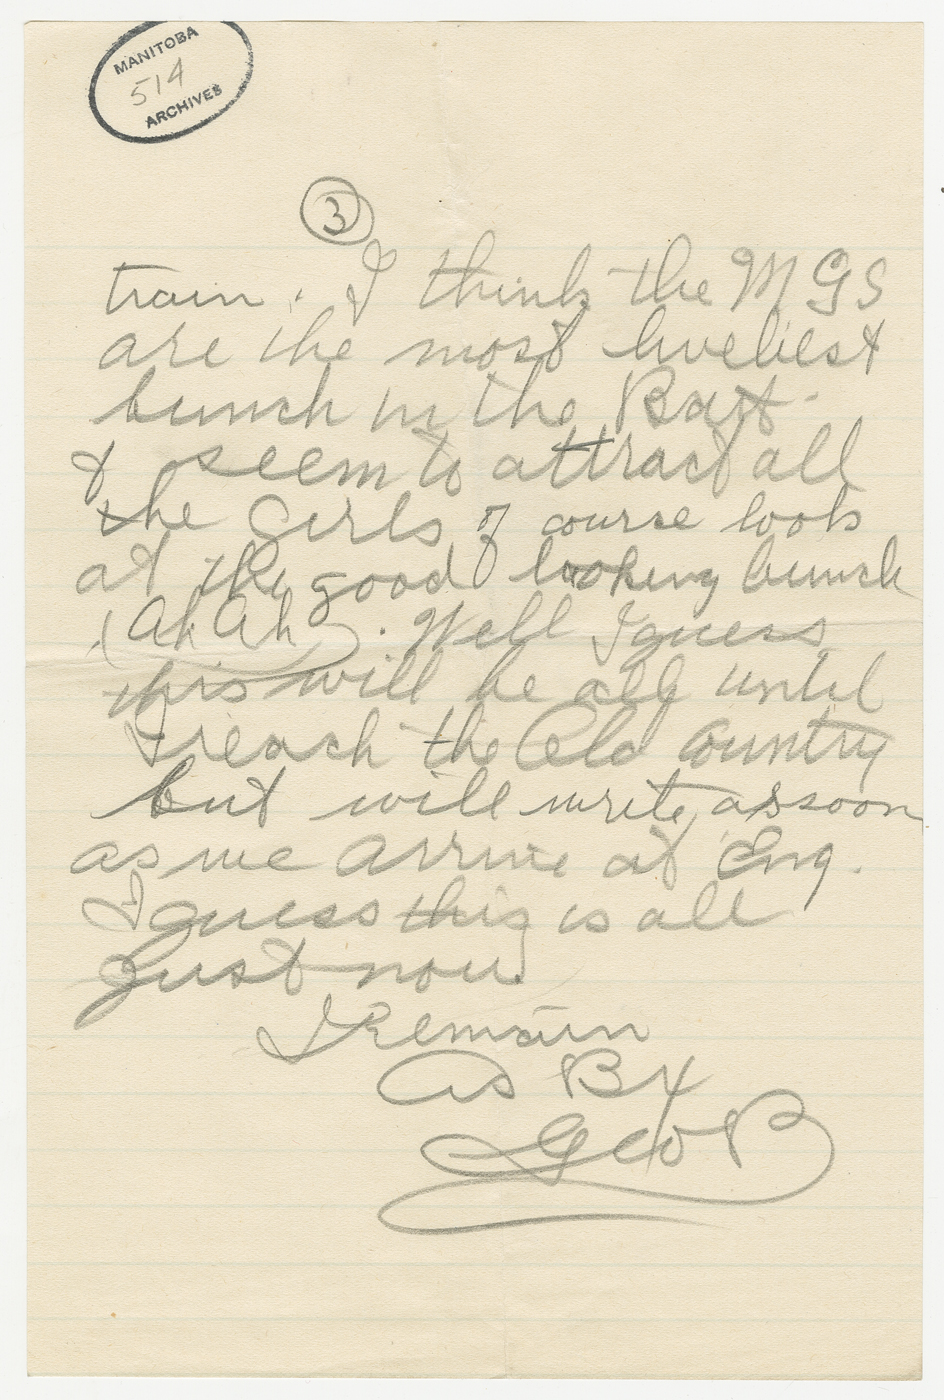 MANITOBA
514
ARCHIVES
3
train. I think the MGS
are the most liveliest
bunch in the Batt.
& seem to attract all
the Girls of course look
at the good looking bunch
(Ah Ah). Well I guess
this will be all until
I reach the Old Country
but will write as soon
as we arrive at Eng.
I guess this is all
Just now.
I Remain
As B4
Geo B